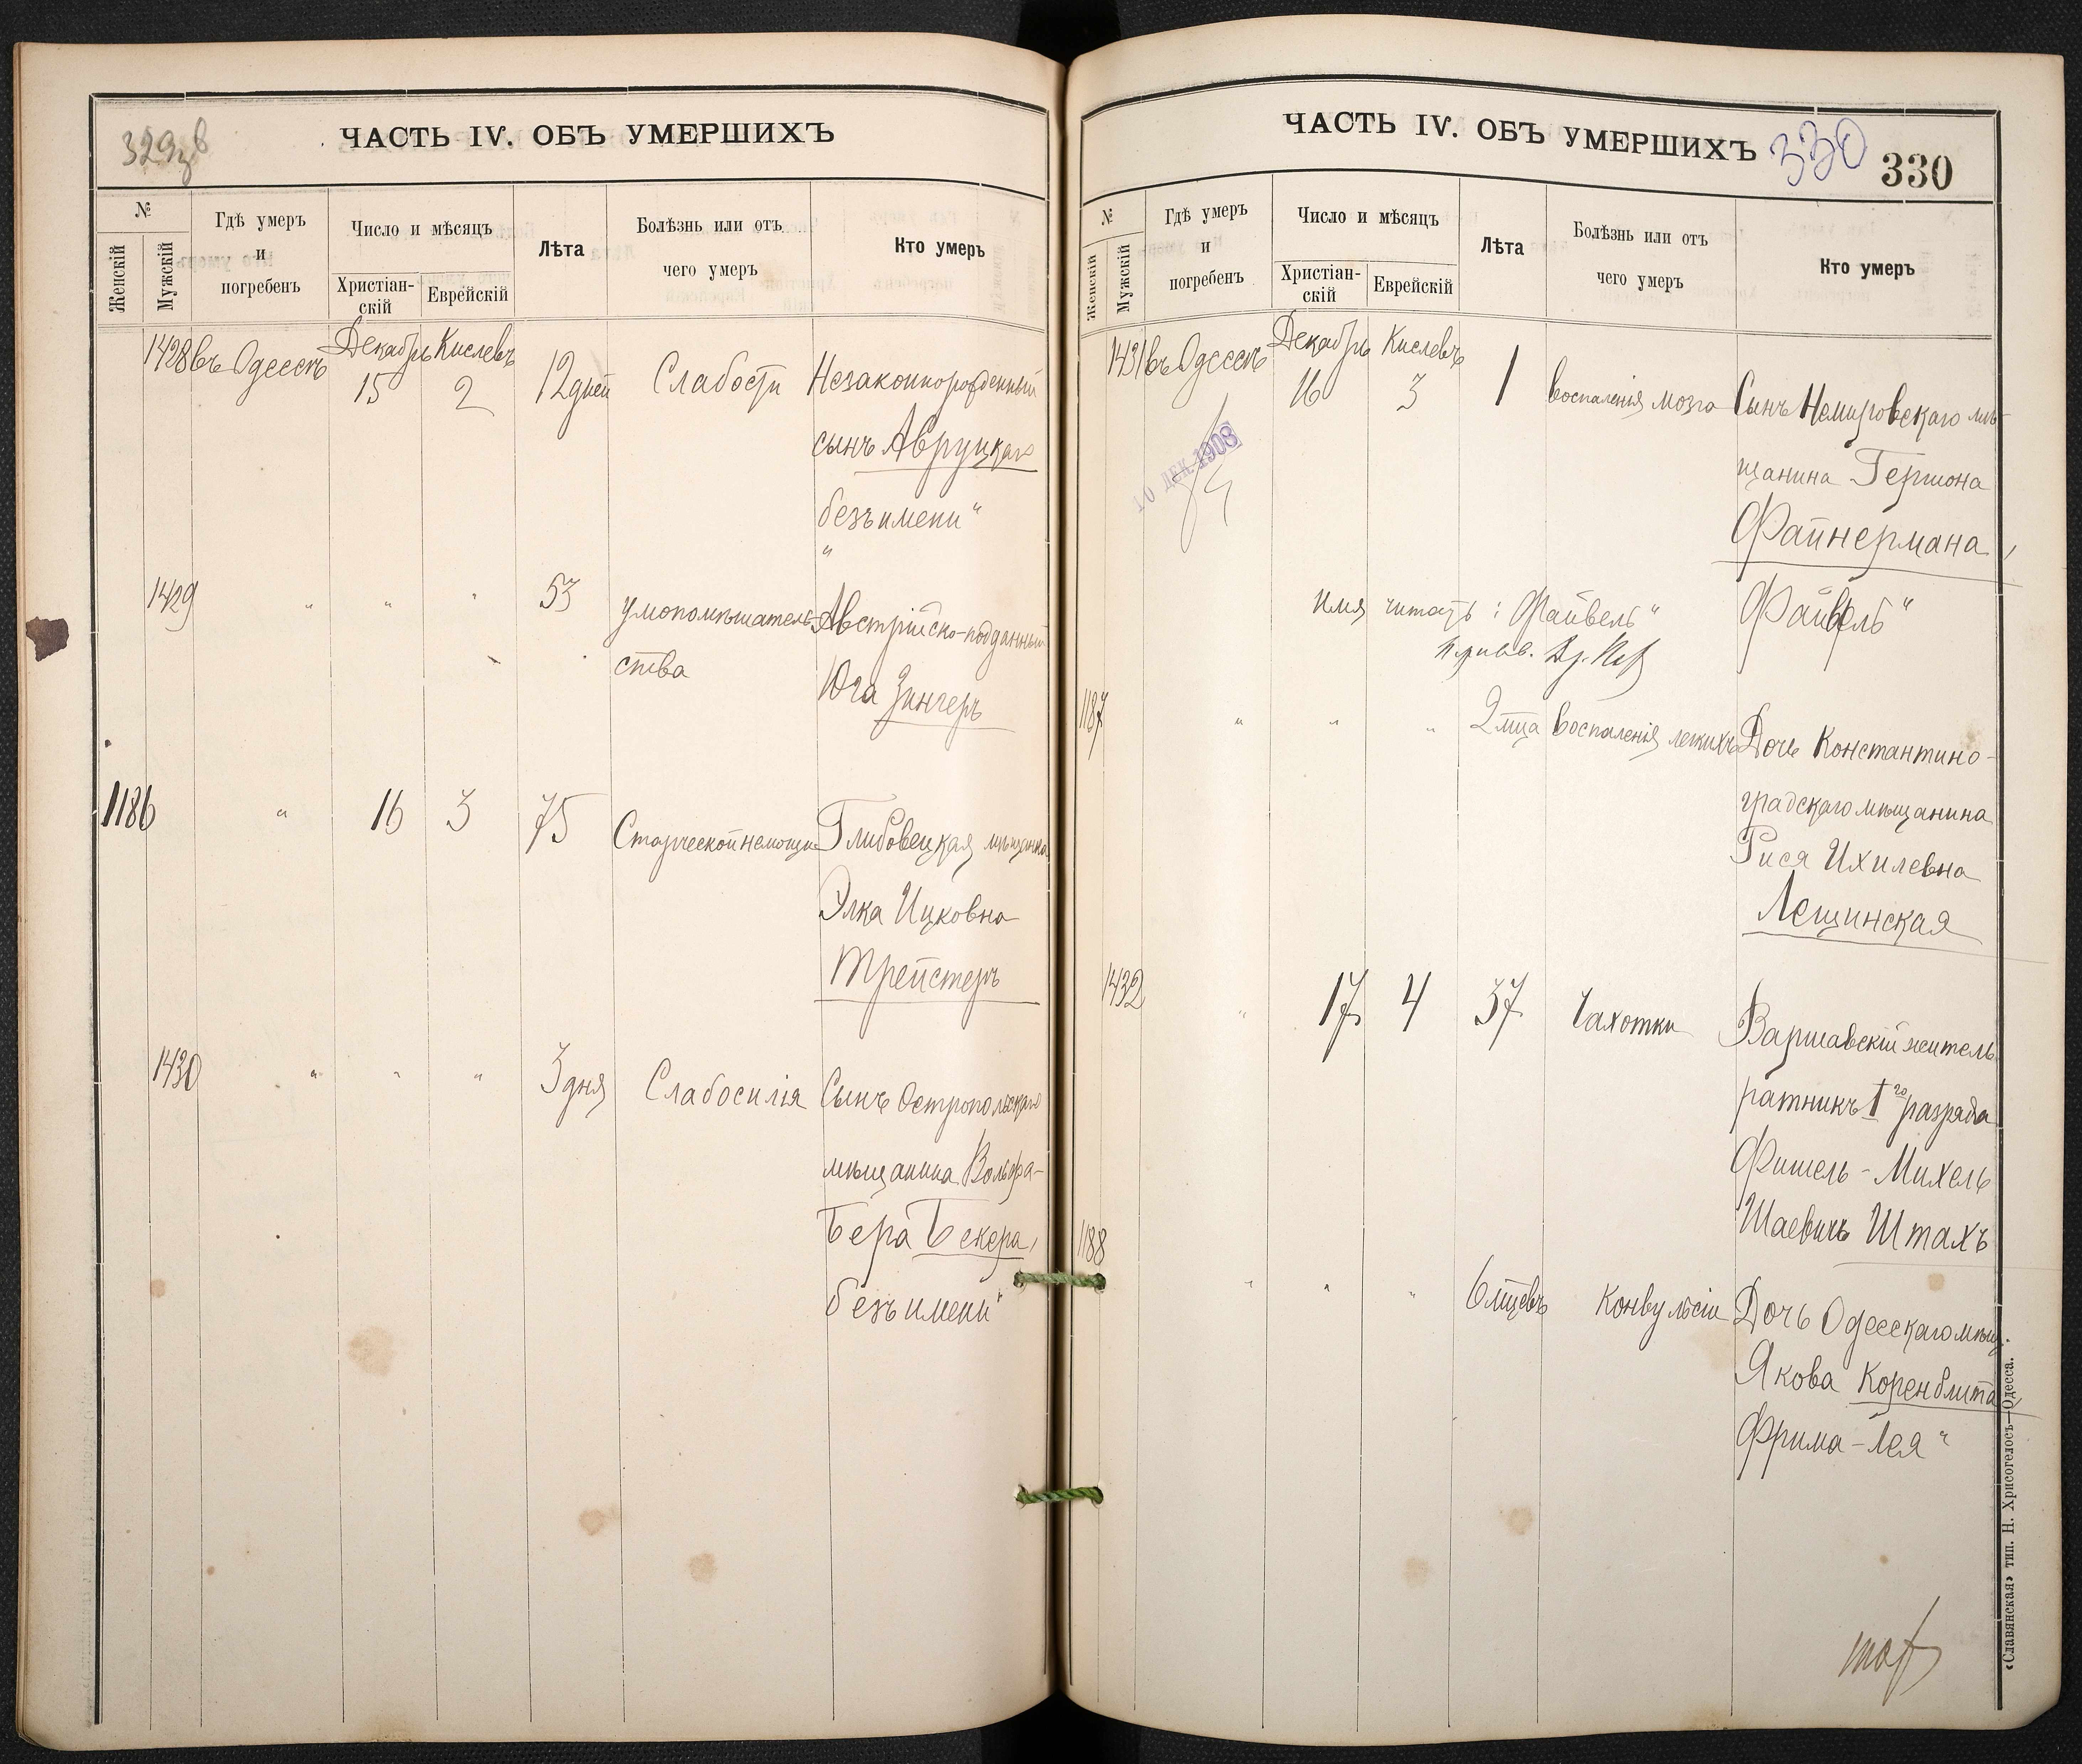 329 об
ЧАСТЬ IV. ОБЪ УМЕРШИХЪ
№
Женскій
Мужскій
Гдѣ умеръ
и
погребенъ
Число и мѣсяцъ
Христіан-
скій
Еврейскій
Лѣта
Болѣзнь или отъ
чего умеръ
Кто умеръ
1428 въ Одессѣ Декабрь 15 Кислевъ 2 12 дней Слабости Незаконнорожденный
сынъ Авруцкаго
безъ имени"
"
1429 " " " 53 умопомѣшатель- Австрійско-подданный
ства
Юга Зингеръ
1186 " 16 3 75 Старческой немощи Глибовецкая мѣщанка
Элка Ицковна
Трейстеръ
1430 " " " 3 дня Слабосилія Сынъ Остропольскаго
мѣщанина Вольфа-
Бера Бекера,
безъ имени"
ЧАСТЬ IV. ОБЪ УМЕРШИХЪ 330
330
№
Женскій
Мужскій
Гдѣ умеръ
и
погребенъ
Число и мѣсяцъ
Христіан-
скій
Еврейскій
Лѣта
Болѣзнь или отъ
чего умеръ
Кто умеръ
1431 въ Одессѣ Декабрь 16 Кислевъ 3 1 воспаленія мозга Сынъ Немировскаго мѣ-
щанина Гершона
10 ДЕК. 1908
Файнермана,
имя читать: Файвель" Файвель"
1187 " " " 2 мца воспаленія легкихъ Дочь Константино-
градскаго мѣщанина
Рися Ихилевна
Лещинская
1432 " 17 4 37 Чахотки Варшавскій житель
ратникъ I го разряда
Фишель-Михель
Шаевичъ Штахъ
1188 " " " 6 мцевъ Конвульсіи Дочь Одесскаго мѣщ.
Якова Коренблита,
Фрима-Лея"
«Славянская» тип. Н. Хрисогелосъ—Одесса.